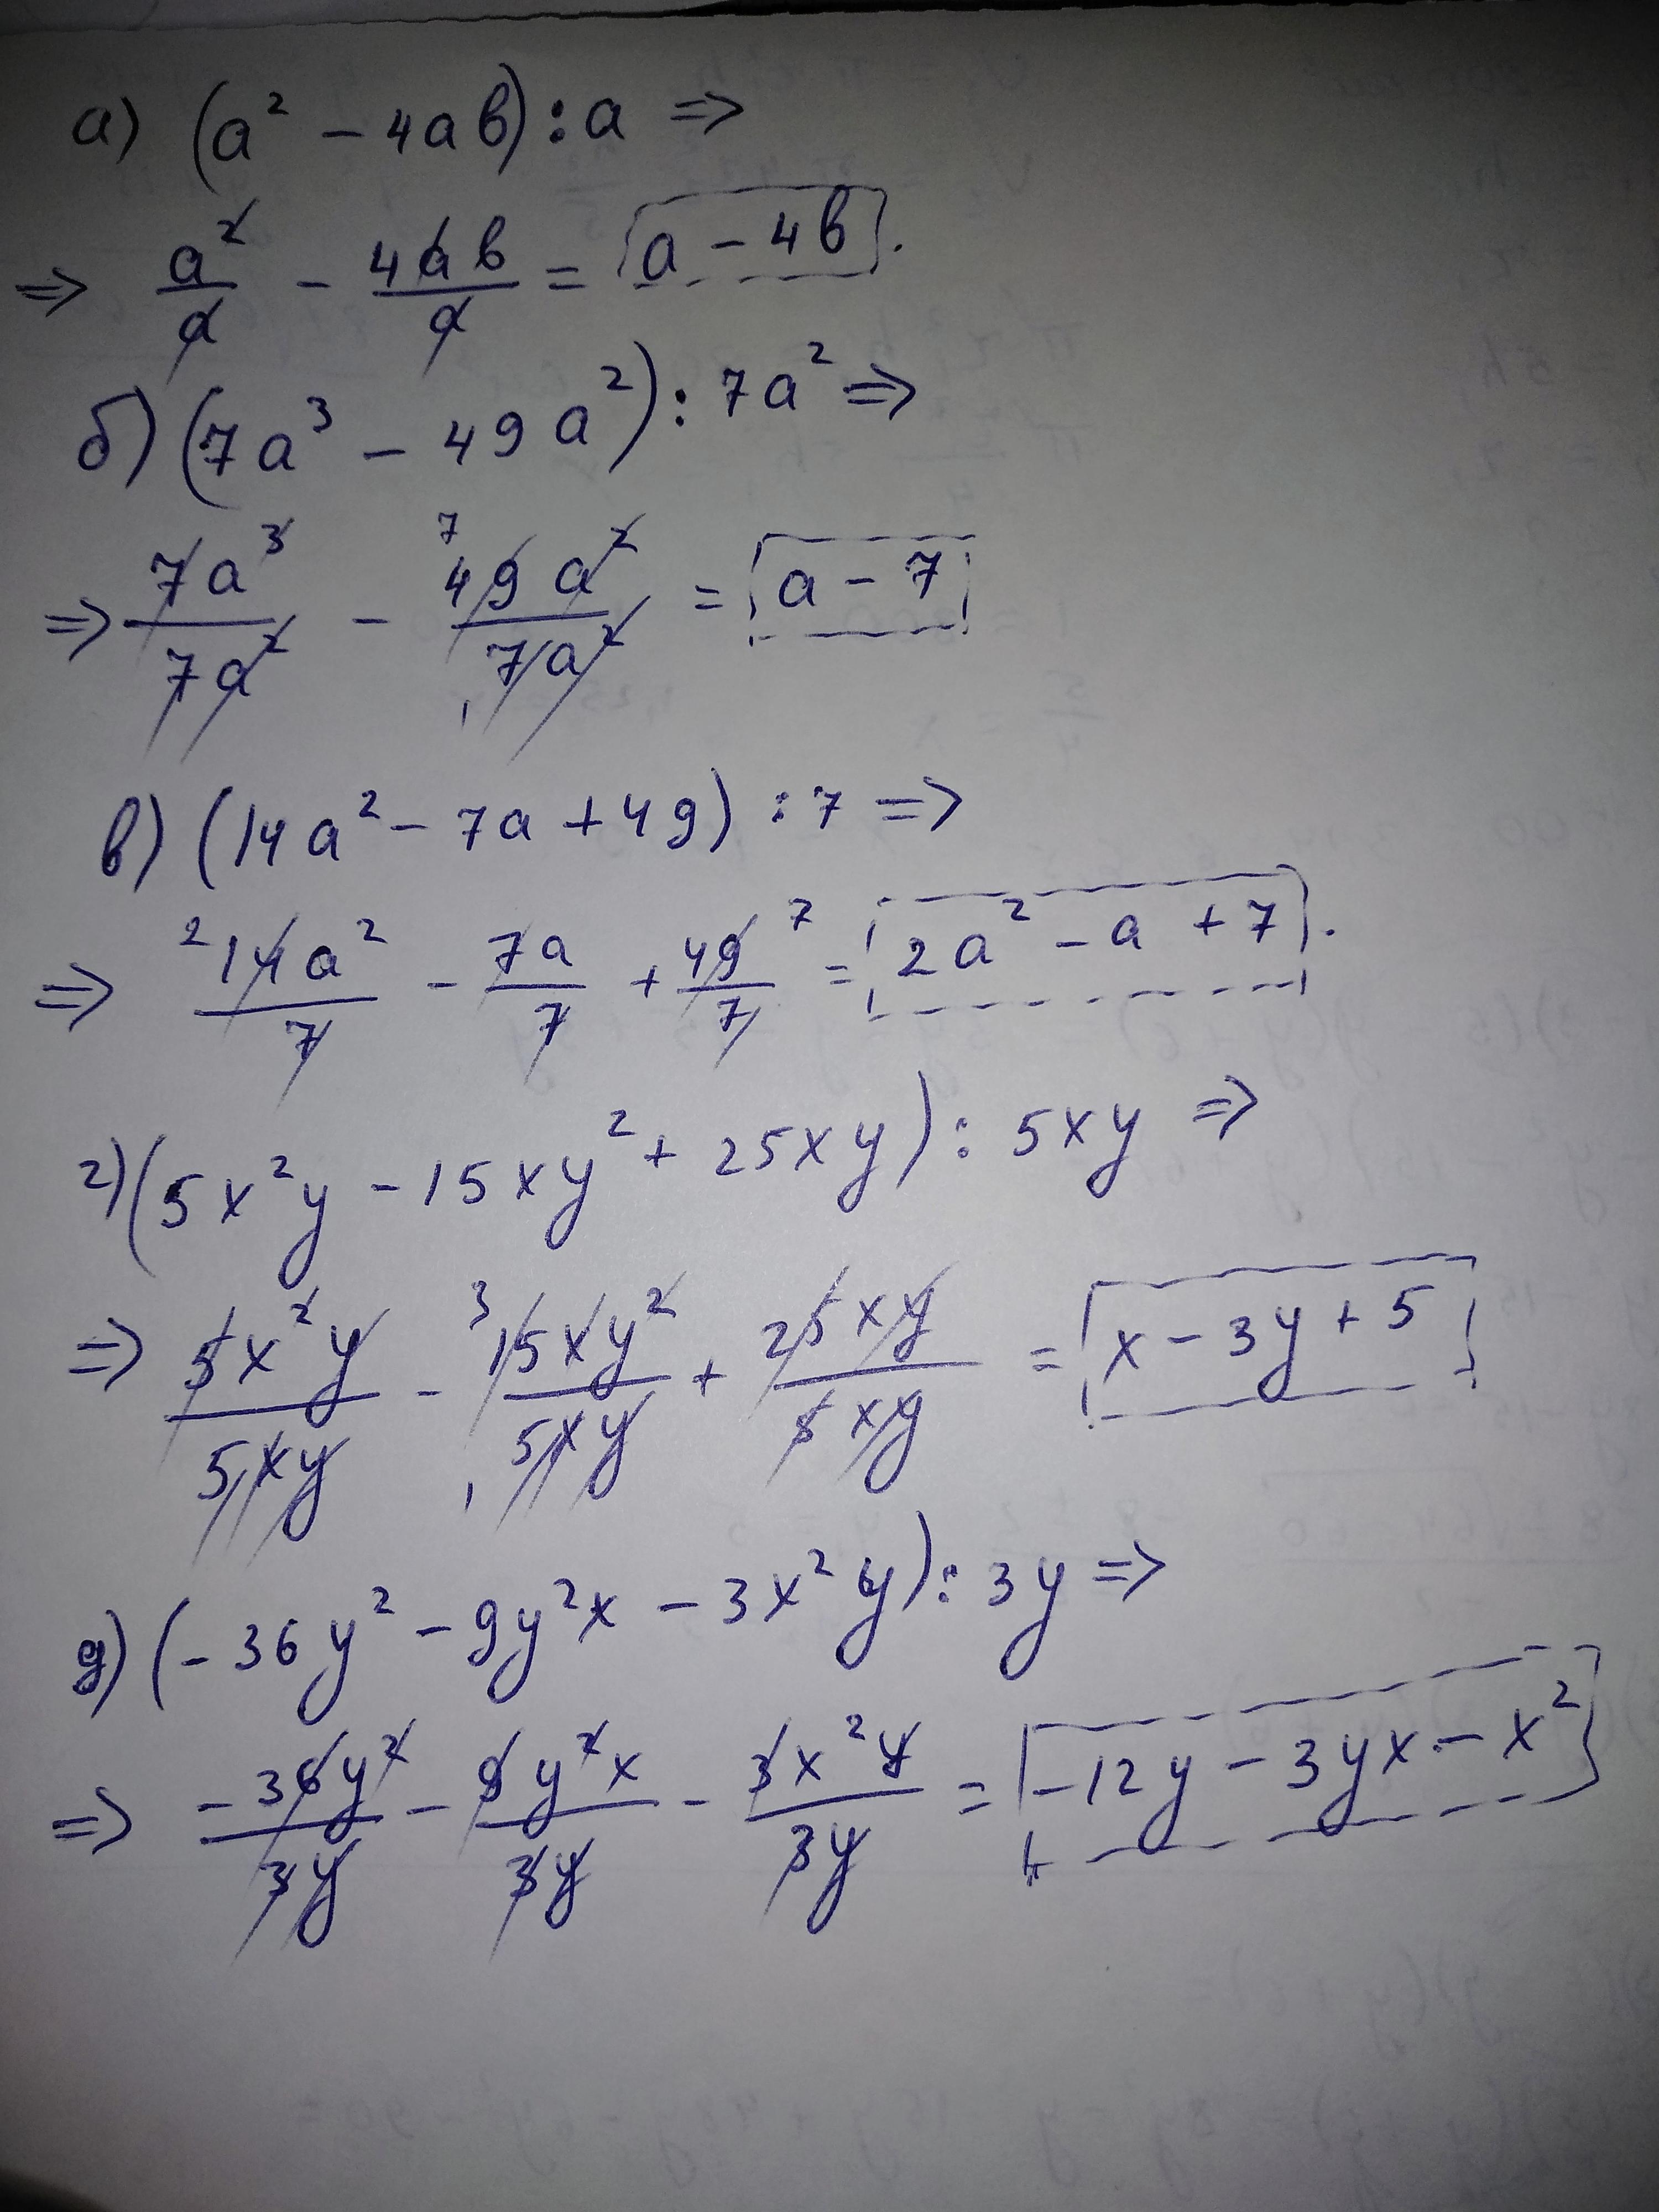 а) (a² - 4ab) : a ⇒
⇒ a²/a - 4ab/a = a - 4b.
б) (7a³ - 49a²) : 7a² ⇒
⇒ 7a³/7a² - 49a²/7a² = a - 7
в) (14a² - 7a + 49) : 7 ⇒
⇒ 14a²/7 - 7a/7 + 49/7 = 2a² - a + 7.
г) (5x²y - 15xy² + 25xy) : 5xy ⇒
⇒ 5x²y/5xy - 15xy²/5xy + 25xy/5xy = x - 3y + 5
д) (-36y² - 9y²x - 3x²y) : 3y ⇒
⇒ -36y²/3y - 9y²x/3y - 3x²y/3y = -12y - 3yx - x²